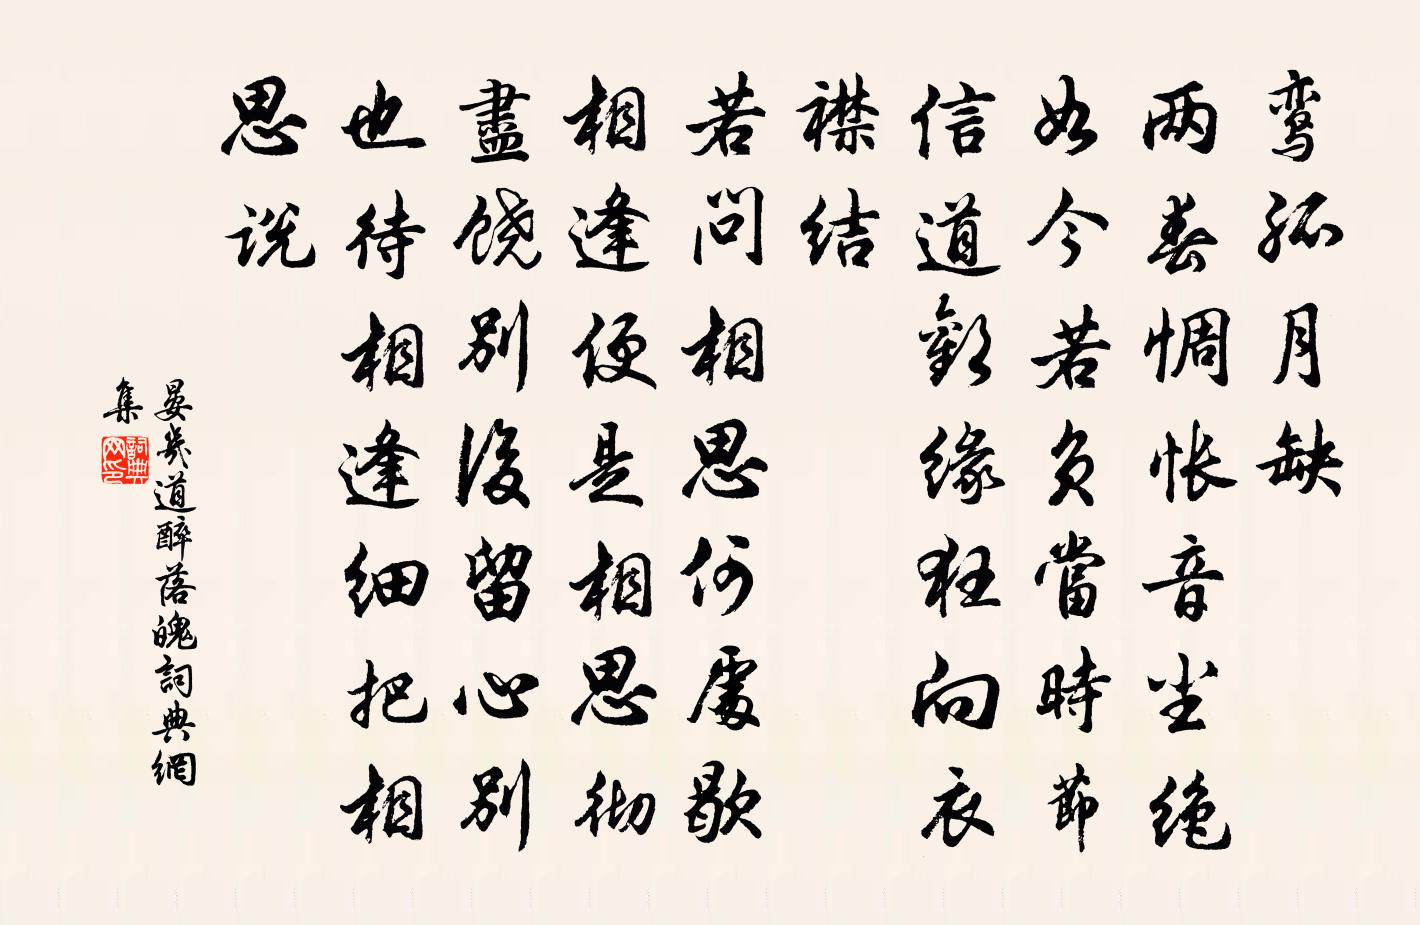 鸾孤月缺
两春惆怅音尘绝
如今若负當時節
信道歡缘狂向衣
襟结
若问相思何處歇
相逢便是相思彻
盡饶别後留心别
也待相逢细把相
思说
晏幾道醉落魄詞典網
集
詞典网印